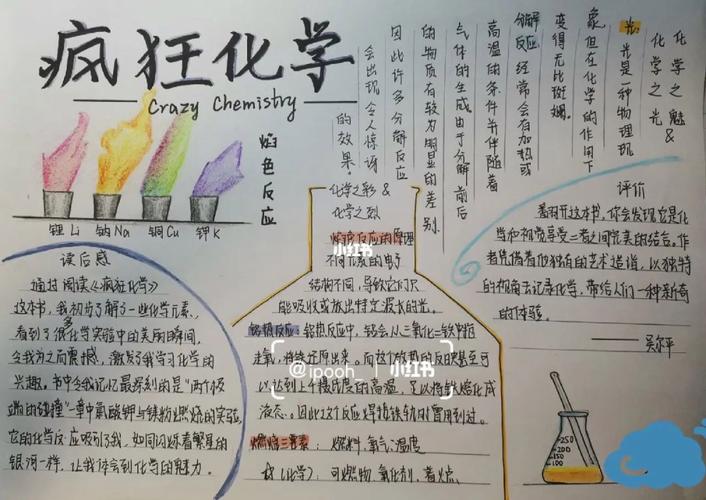 疯狂化学
Crazy Chemistry
焰色反应
锂Li 钠Na 铜Cu 钾K
化学之魅&
化学之光
光:光是一种物理现
象,但在化学的作用下
变得无比斑斓。
分解反应:经常会有加热或
高温的条件并伴随着
气体的生成由于分解前后
的物质有较为明显的差别
因此许多分解反应
会出现令人惊讶
的效果。
化学之彩&
化学之烈
焰色反应的原理
不同元素的电子
结构不同,导致它们只
能吸收或放出特定波长的光。
铝热反应:铝热反应中,铝会从三氧化二铁中抢
走氧,将铁还原出来。而这个放热的反应甚至可
以达到上千摄氏度的高温,足以将铁熔化成
液态。因此这个反应焊接铁轨时常用到过。
燃烧三要素:燃料、氧气、温度
(化学):可燃物、氧化剂、着火点
读后感
通过阅读《疯狂化学》
这本书,我初步了解了一些化学元素,
看到了很多化学实验中的美丽瞬间,
令我为之而震撼,激发了我学习化学的
兴趣。书中令我记忆最深刻的是“两个极
端的碰撞”一章中氯酸钾与镁粉燃烧的实验,
它的化学反应吸引了我,如同闪烁着繁星的
银河一样,让我体会到化学的魅力。
评价
翻开这本书,你会发现它是化
学和视觉享受二者之间完美的结合。作
者凭借着他独有的艺术造诣,以独特
的视角去记录化学,带给人们一种新奇
的体验。
——吴尔平
小红书
@ipooh_ 小红书
250
150
100